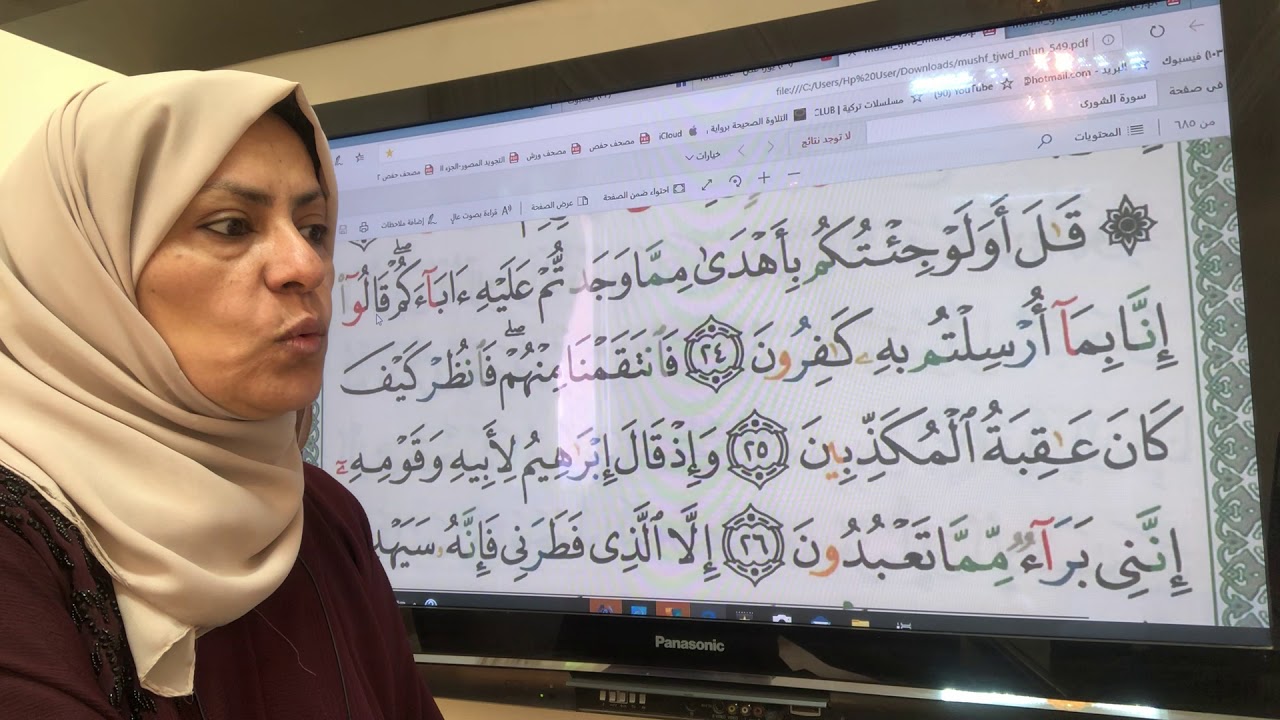 mushf_tjwd_mlun_549.pdf
file:///C:/Users/Hp%20User/Downloads/mushf_tjwd_mlun_549.pdf
(١٠٣) فيسبوك
البريد - @hotmail.com
(90) YouTube
مسلسلات تركية | CLUB
التلاوة الصحيحة برواية
iCloud
مصحف حفص
مصحف ورش
التجويد المصور-الجزء اا
مصحف حفص ٢
في صفحة
سورة الشورى
لا توجد نتائج
خيارات
من ٦٨٥
المحتويات
احتواء ضمن الصفحة
عرض الصفحة
قراءة بصوت عالٍ
إضافة ملاحظات
۞ قَٰلَ أَوَلَوْ جِئْتُكُم بِأَهْدَىٰ مِمَّا وَجَدتُّمْ عَلَيْهِ ءَابَآءَكُمْۖ قَالُوٓا۟
إِنَّا بِمَآ أُرْسِلْتُم بِهِۦ كَٰفِرُونَ ٢٤ فَٱنتَقَمْنَا مِنْهُمْۖ فَٱنظُرْ كَيْفَ
كَانَ عَٰقِبَةُ ٱلْمُكَذِّبِينَ ٢٥ وَإِذْ قَالَ إِبْرَٰهِيمُ لِأَبِيهِ وَقَوْمِهِۦٓ
إِنَّنِى بَرَآءٌ مِّمَّا تَعْبُدُونَ ٢٦ إِلَّا ٱلَّذِى فَطَرَنِى فَإِنَّهُۥ سَيَهْد
Panasonic